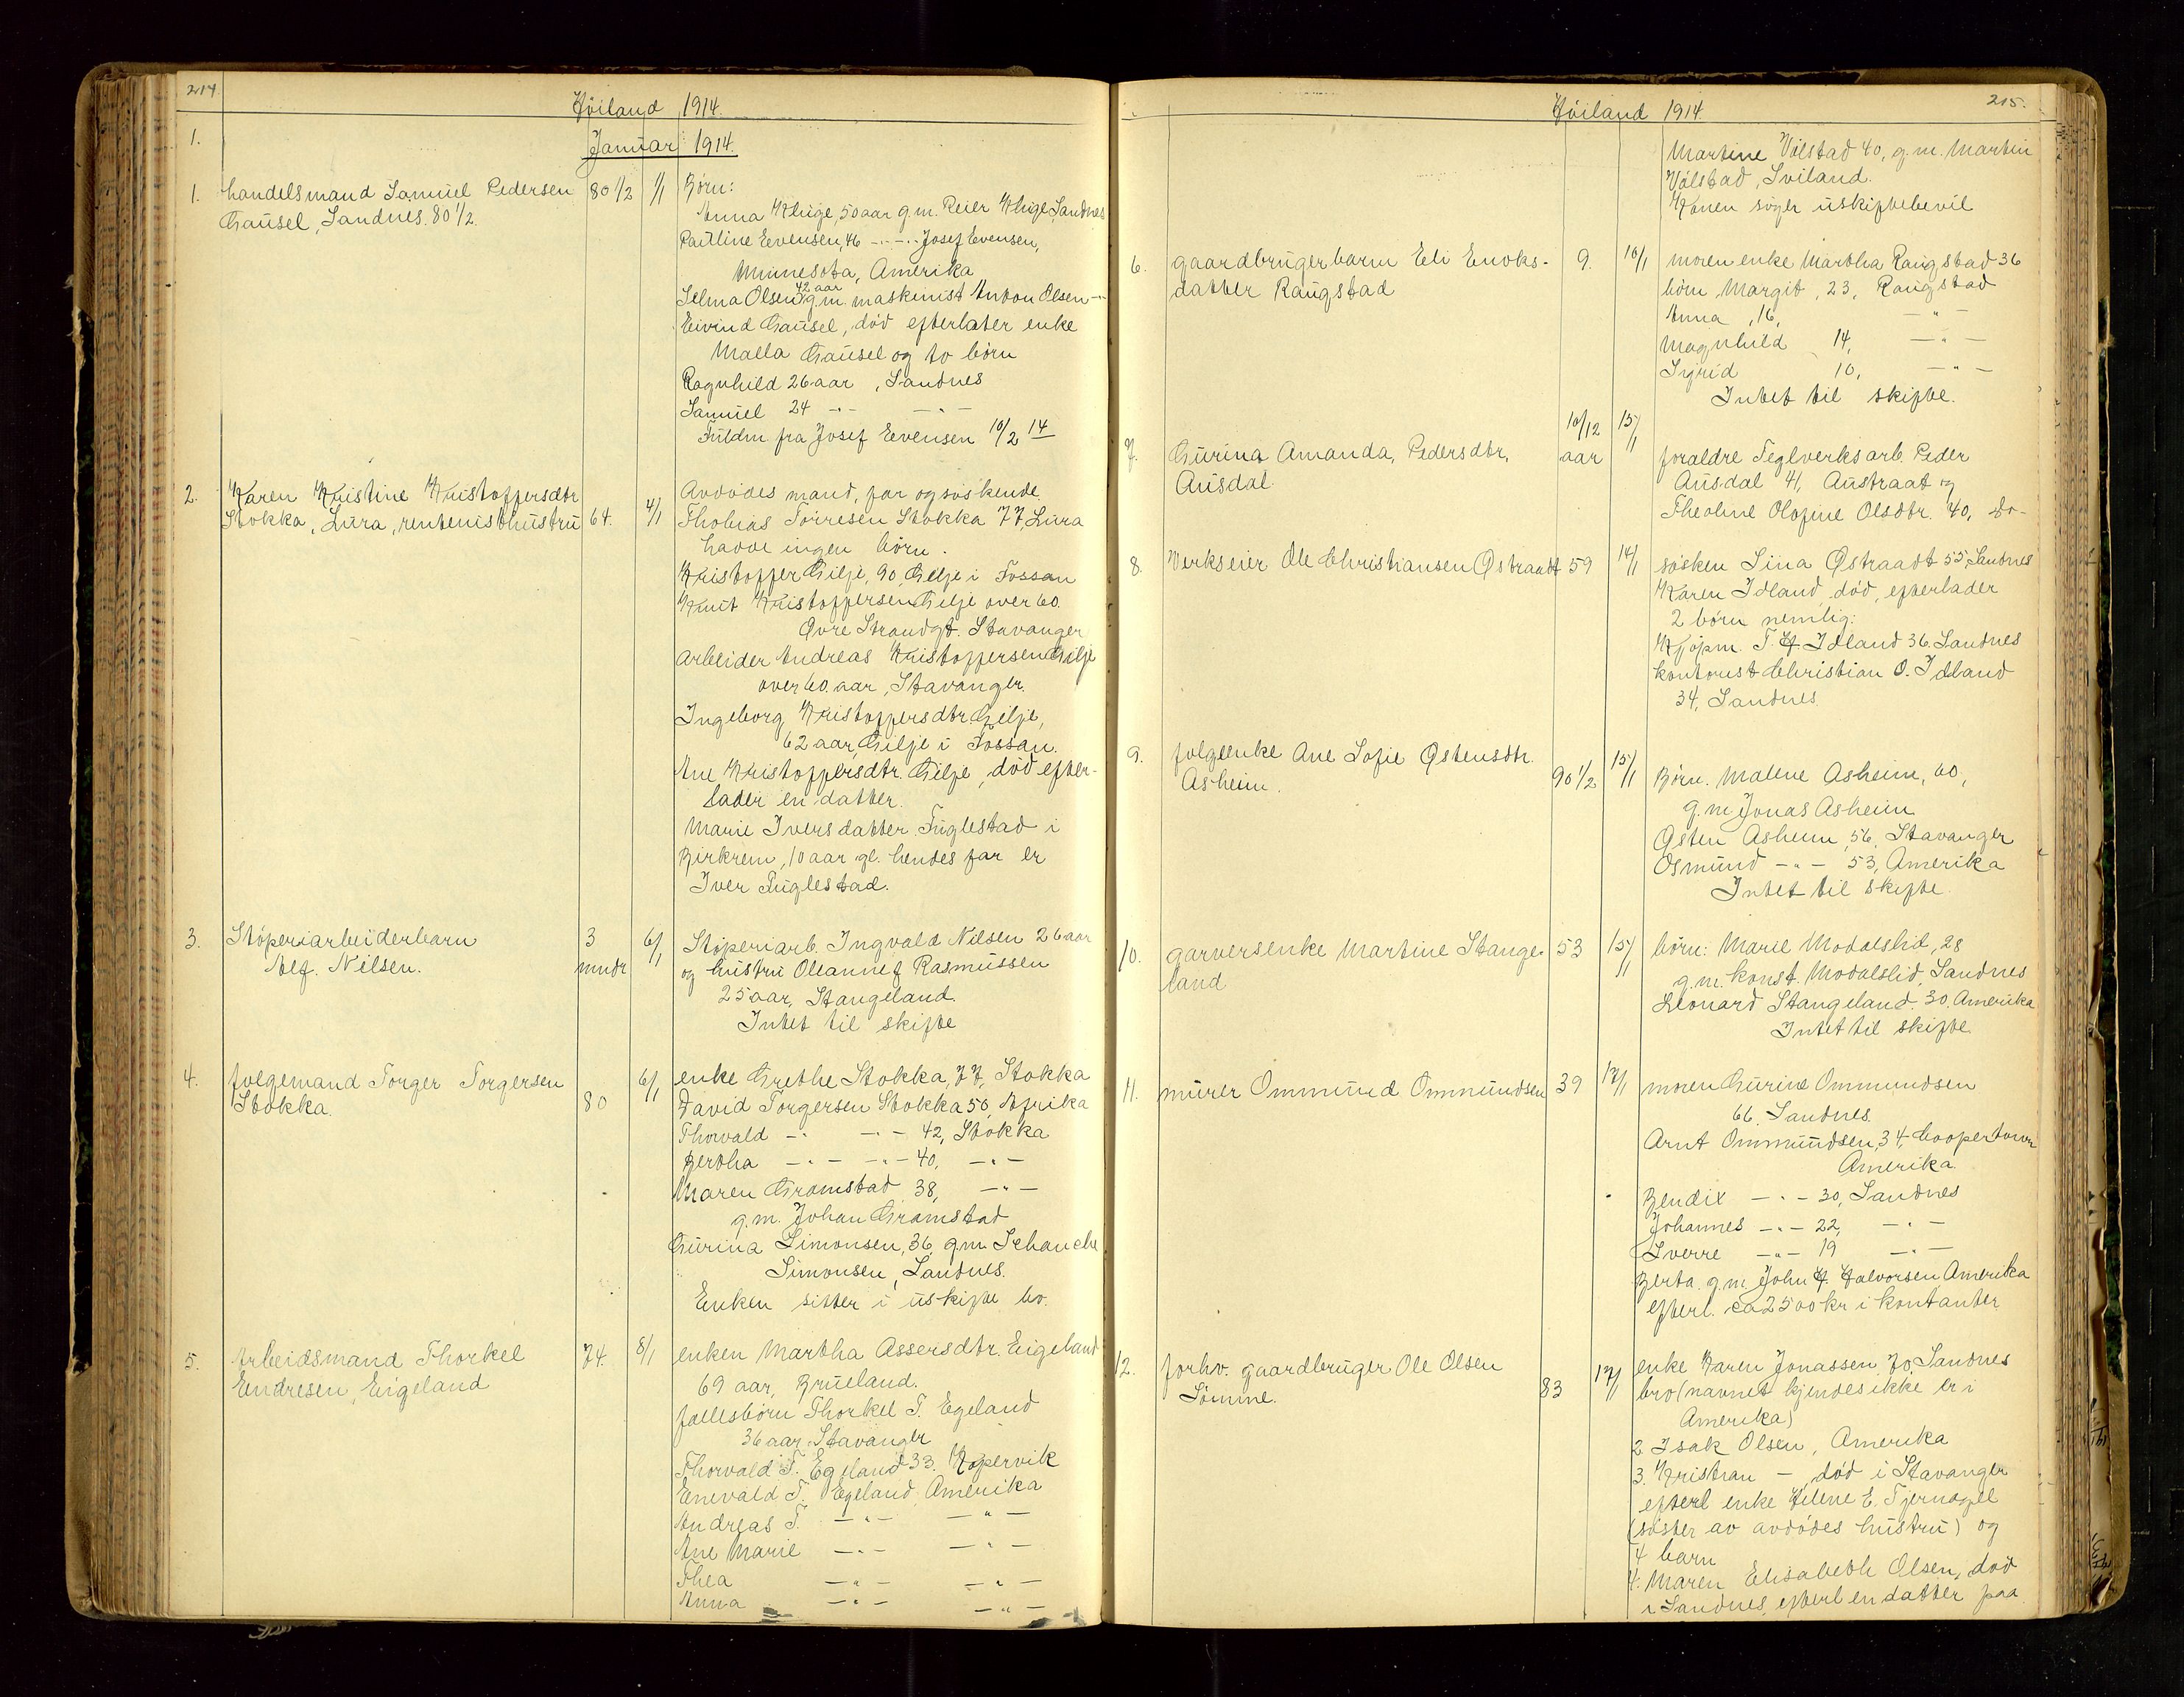 214.
Høiland 1914.
1.
Januar 1914.
1. handelsmand Samuel Pedersen 80 1/2 1/1 Børn:
Gausel, Sandnes. 80 1/2.
Anna Kluge, 50 aar g.m. Reier Kluge, Sandnes
Pauline Eevensen, 46 -"- -"- Josef Evensen,
Minnesota, Amerika
Selma Olsen 42 aar g.m. maskinist Anton Olsen -"-
Eivind Gausel, død efterlater enke
Malla Gausel og to børn
Ragnhild 26 aar, Sandnes
Samuel 24 -"- -"-
Fuldm fra Josef Eevensen 10/2 14
2. Karen Kristine Kristoffersdtr
Stokka, Lura, rentenisthustru 64. 4/1
Avdødes mand, far og søskende.
Thobias Torresen Stokka 77, Lura
havde ingen børn.
Kristoffer Gilje, 90, Gilje i Fossan
Knut Kristoffersen Gilje over 60.
Øvre Strandgt. Stavanger
Arbeider Andreas Kristoffersen Gilje
over 60 aar, Stavanger.
Ingeborg Kristoffersdtr Gilje,
62 aar, Gilje i Fossan.
Ane Kristoffersdtr. Gilje, død efter-
lader en datter.
Marie Iversdatter Fuglestad i
Birkrem, 10 aar gl. hendes far er
Iver Fuglestad.
3. Støperiarbeiderbarn 3 6/1 Støperiarb. Ingvald Nilsen 26 aar
Alf. Nilsen. mndr og hustru Oleanne f Rasmussen
25 aar, Stangeland.
Intet til skifte
4. folgemand Torger Torgersen 6/1 enke Grethe Stokka, 77, Stokka
Stokka. 80 David Torgersen Stokka 50, Afrika
Thorvald -"- -"- 42, Stokka
Bertha -"- -"- 40, -"-
Maren Gramstad 38, -"-
g.m. Johan Gramstad
Gurina Simonsen, 36, g.m. Schanche
Simonsen, Sandnes.
Enken sitter i uskifte bo.
5. Arbeidsmand Thorkel 74. 8/1 enken Martha Assersdtr. Eigeland
Endresen, Eigeland 69 aar, Brueland.
fællesbørn Thorkel T. Egeland
36 aar, Stavanger
Thorvald T. Egeland 33. Kopervik
Enevald T. Egeland Amerika
Andreas T. -"- -"-
Ane Marie -"- -"-
Thea -"- -"-
Anna -"- -"-
Høiland 1914.
215.
Martine Vølstad 40, g.m. Martin
Vølstad, Sviland.
Konen søger uskiftebevil
6. gaardbrugerbarn Eli Enoks- 9. 10/1 moren enke Martha Raugstad 36
datter Raugstad børn Margit, 23, Raugstad
Anna, 16, -"-
Magnhild 14, -"-
Ingrid 10, -"-
Intet til skifte.
7. Gurina Amanda, Pedersdtr, 10/12 aar 13/1 foraldre Teglverksarb. Peder
Ausdal Ausdal 41, Austraat og
Theoline Olofine Olsdtr. 40, do-
8. Verkseier Ole Christiansen Østraadt 59 14/1 søsken Sina Østraadt 55, Sandnes
Karen Idland, død, efterlader
2 børn nemlig:
Kjøpm. T. H Idland 36. Sandnes
kontorist Christian O. Idland
34, Sandnes.
9. folgeenke Ane Sofie Østensdtr.
Asheim. 90 1/2 15/1 Børn. Malene Asheim, 60,
g.m. Jonas Asheim
Østen Asheim, 56, Stavanger
Osmund -"- 53, Amerika
Intet til skifte.
10. garversenke Martine Stange- 53 15/1 børn: Marie Modalslid, 28
land g.m. konst. Modalslid, Sandnes
Leonard Stangeland. 30 Amerika
Intet til skifte.
11. murer Ommund Ommundsen 39 17/1 moren Gurine Ommundsen
66. Sandnes.
Arnt Ommundsen, 34, Coopertown
Amerika.
Bendix -"- 30, Sandnes
Johannes -"- 22, -"-
Sverre -"- 19 -"-
Berta g.m. John H. Halvorsen Amerika
efterl. ca 2500 kr i kontanter
12. forhv. gaardbruger Ole Olsen 83 17/1 enke Karen Jonassen 70, Sandnes
Sømme. bro (navnet kjendes ikke er i
Amerika)
2 Isak Olsen, Amerika
3. Kristian - død i Stavanger
efterl enke Helene E. Tjernagel
(søster av avdødes hustru) og
4 barn
4. Maren Elisabeth Olsen, død
i Sandnes, efterl en datter paa